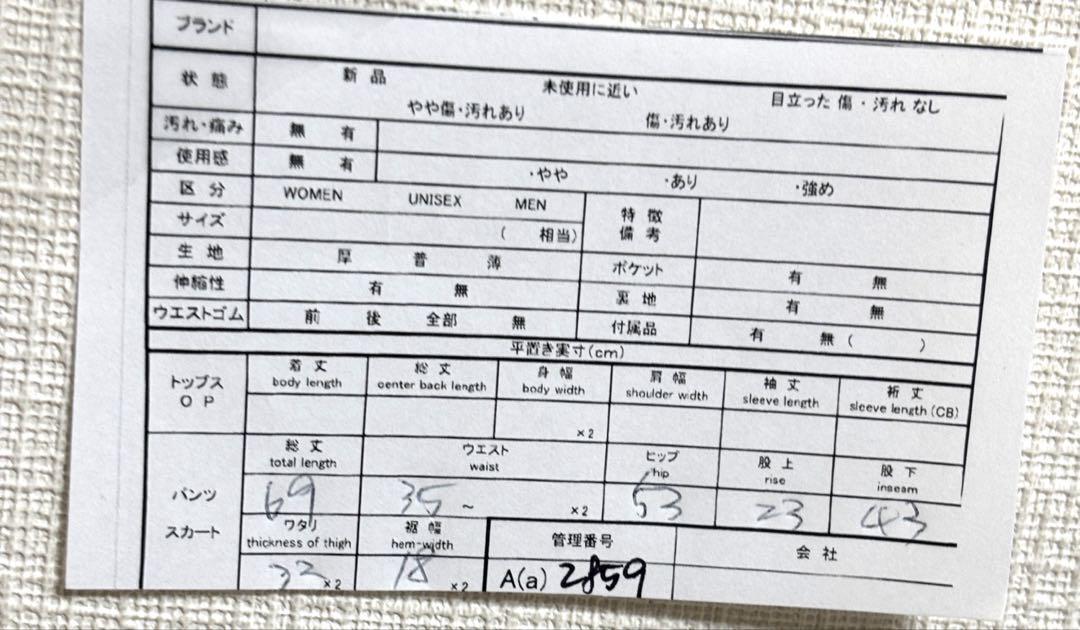 ブランド
状態 新品 未使用に近い 目立った傷・汚れなし
やや傷・汚れあり 傷・汚れあり
汚れ・痛み 無 有
使用感 無 有 ・やや ・あり ・強め
区分 WOMEN UNISEX MEN 特徴
備考
サイズ ( 相当)
生地 厚 普 薄 ポケット 有 無
伸縮性 有 無 裏地 有 無
ウエストゴム 前 後 全部 無 付属品 有 無 ( )
平置き実寸(cm)
トップス
OP
着丈 総丈 身幅 肩幅 袖丈 裄丈
body length center back length body width shoulder width sleeve length sleeve length (CB)
×2
パンツ
スカート
総丈 ウエスト ヒップ 股上 股下
total length waist hip rise inseam
69 35 ~ ×2 53 23 43
ワタリ 裾幅 管理番号 会社
thickness of thigh hem-width
×2 18 ×2 A(a) 2859